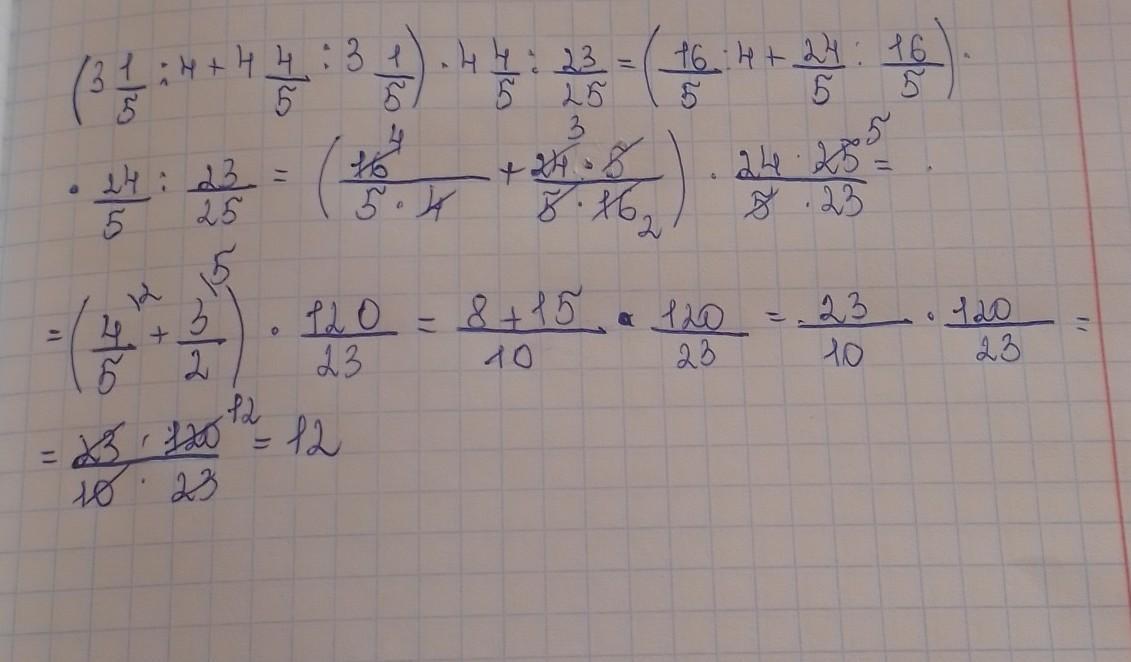 (3 1/5 : 4 + 4 4/5 : 3 1/5) · 4 4/5 : 23/25 = (16/5 : 4 + 24/5 : 16/5) ·
· 24/5 : 23/25 = (16 4/5 · 4 + 24 3 · 5/5 · 16 2) · 24 · 25 5/5 · 23 =
= (4/5 \2 + 3/2 \5) · 120/23 = 8 + 15/10 · 120/23 = 23/10 · 120/23 =
= 23 · 120 12/10 · 23 = 12